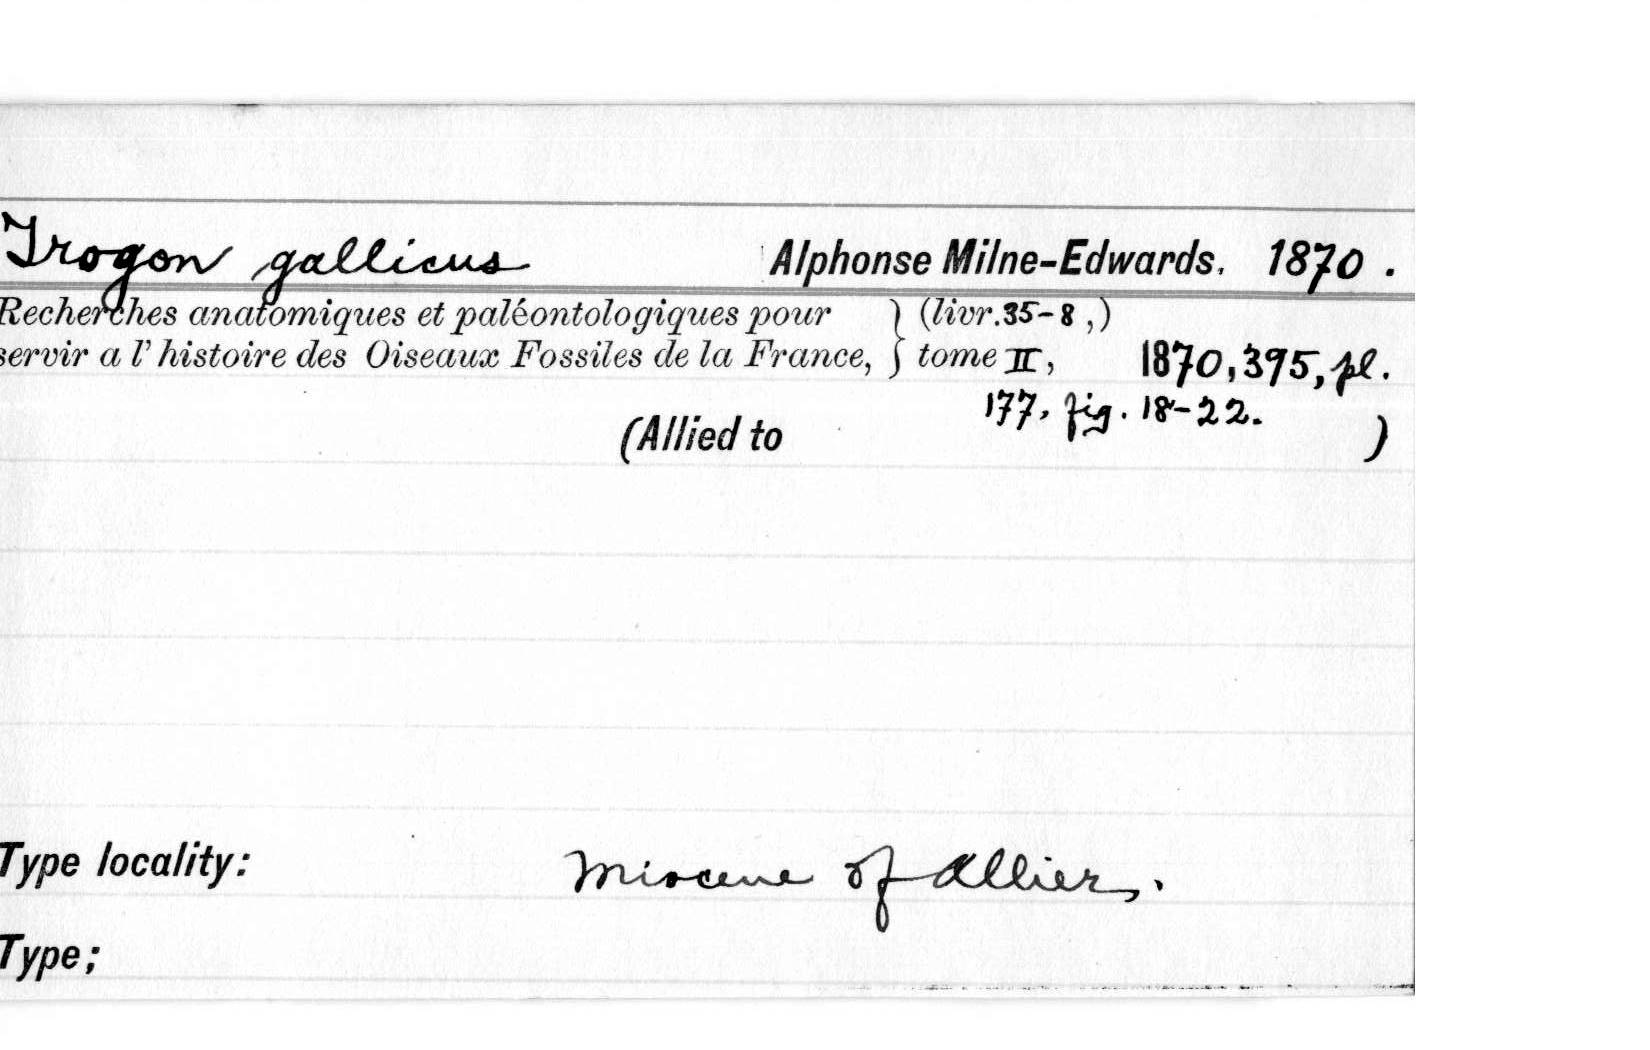 Trogon gallicus Alphonse Milne-Edwards, 1870.
Recherches anatomiques et paléontologiques pour } (livr.35-8,)
servir a l'histoire des Oiseaux Fossiles de la France, } tome II, 1870, 395, pl.
177, fig. 18-22.
(Allied to )
Type locality: Miocene of Allier.
Type;